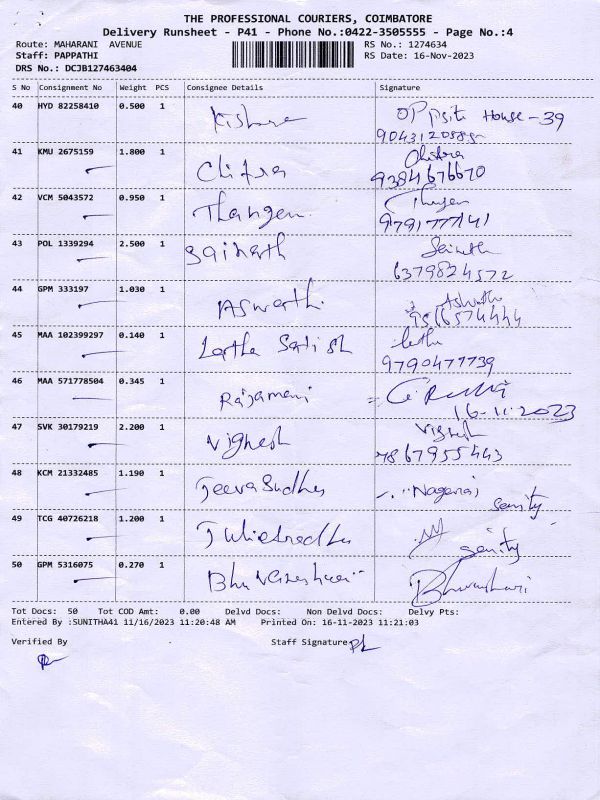 THE PROFESSIONAL COURIERS, COIMBATORE
Delivery Runsheet - P41 - Phone No.:0422-3505555 - Page No.:4
Route: MAHARANI AVENUE RS No.: 1274634
Staff: PAPPATHI RS Date: 16-Nov-2023
DRS No.: DCJB127463404
S No Consignment No Weight PCS Consignee Details Signature
40 HYD 82258410 0.500 1 Kishore Opposite House - 39
41 KMU 2675159 1.800 1 Chitra Chitra
9384676670
42 VCM 5043572 0.950 1 Thangam
9791777141
43 POL 1339294 2.500 1 Sainath Sainath
6379824572
44 GPM 333197 1.030 1 Aswath Aswath
9566574444
45 MAA 102399297 0.140 1 Latha Satish latha
9790477739
46 MAA 571778504 0.345 1 Rajamani
16-11-2023
47 SVK 30179219 2.200 1 Vighesh Vighesh
7867955443
48 KCM 21332485 1.190 1 Jeeva Sudha Nagaraj
49 TCG 40726218 1.200 1
50 GPM 5316075 0.270 1 Bhuvaneshwari Bhuvaneshwari
Tot Docs: 50 Tot COD Amt: 0.00 Delvd Docs: Non Delvd Docs: Delvy Pts:
Entered By :SUNITHA41 11/16/2023 11:20:48 AM Printed On: 16-11-2023 11:21:03
Verified By Staff Signature